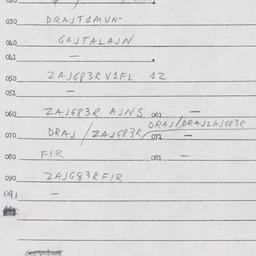 030 DRAJTAMUN-
040 GAJTALAJN
041 —
050 ZAJGP3RV1FL 1Z
051 —
060 ZAJGP3R AJNS 061 —
070 DRAJ/ZAJGP3R/DRAJZAJGP3R 071 —
080 FIR 081 —
090 ZAJG83RFIR
091 —